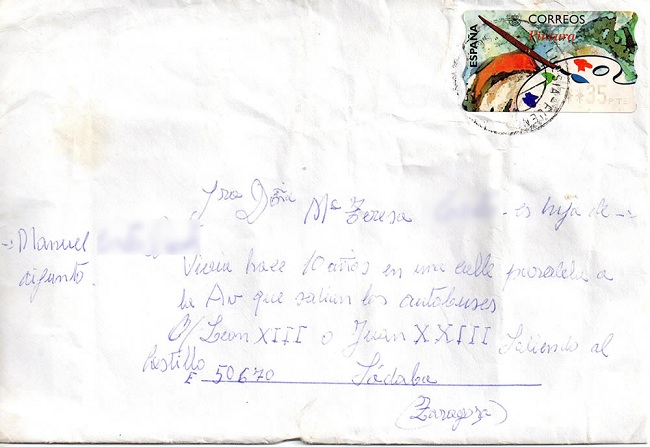 ESPAÑA
CORREOS
Pintura
*35 PTS
Sra Dña Mª Teresa - es hija de -
-Manuel
digunto.
Vivia hace 10 años en una calle paralela a
la Av que salian los autobuses
C/ Leon XIII o Juan XXIII Saliendo al
Castillo
E 50670 Sádaba
(Zaragoza)